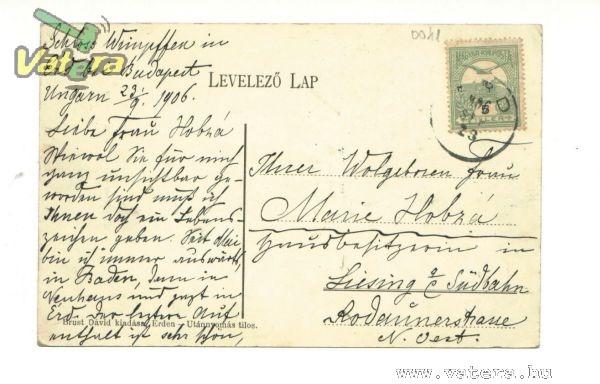 Schloss Wimpffen in
Érd bei Budapest
Ungarn 23/9. 1906.
Liebe Frau Hobzá
Wiewol Sie für mich
ganz unsichtbar ge-
worden sind muß ich
Ihnen doch ein Lebens-
zeichen geben. Seit Mai
bin ich immer auswärts,
in Baden, dann in
Neuhaus und jetzt in
Érd. Der letzte Auf
enthalt ist sehr schön,
Brust Dávid kiadása, Érden – Utánnyomás tilos.
Vatera
LEVELEZŐ LAP
0041
MAGYAR KIR. POSTA
Ihrer Wolgeboren Frau
Marie Hobzá
Hausbesitzerin in
Liesing a/c Südbahn
Rodaunerstrasse
N. Oest.
www.vatera.hu